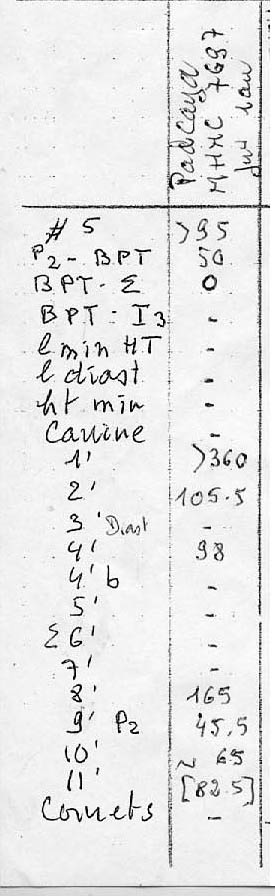 Padcaya
MHNC 7697
# 5 >95
P2 - BPT 50
BPT - Σ 0
BPT - I3 -
l min HT -
l diast -
ht min -
Canine -
1' >360
2' 105.5
3' Diast -
4' 98
4' b -
5' -
Σ 6' -
7' -
8' 165
9' P2 45.5
10' ~ 65
11' [82.5]
Cornets -